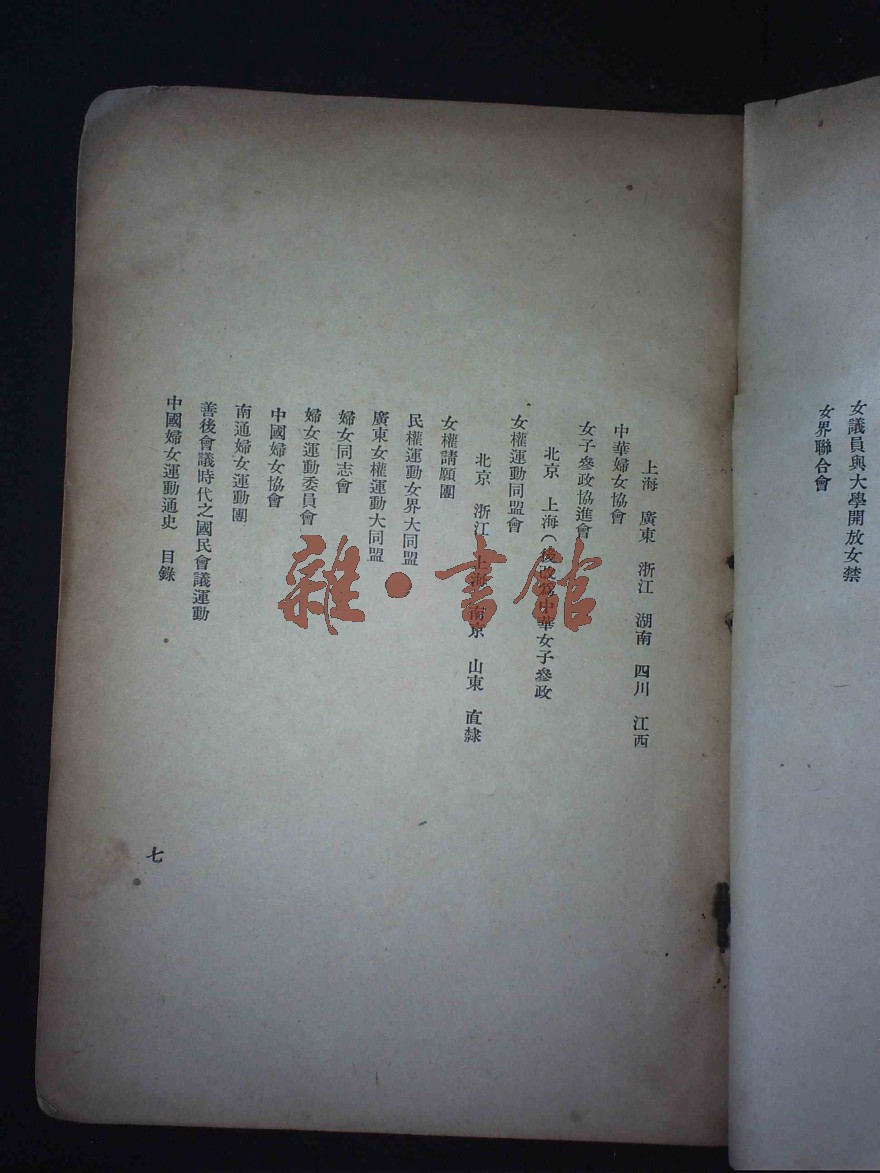 女議員與大學開放女禁
女界聯合會
上海　廣東　浙江　湖南　四川　江西
中華婦女協會
女子參政協進會
北京　上海（後改爲中華女子參政
女權運動同盟會
北京　浙江　上海　南京　山東　直隸
女權請願團
民權運動女界大同盟
廣東女權運動大同盟
婦女同志會
婦女運動委員會
中國婦女協會
南通婦女運動團
善後會議時代之國民會議運動
中國婦女運動通史　目錄
七
雜·書館